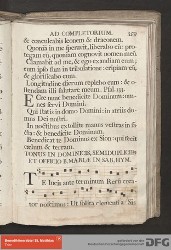 AD COMPLETORIUM. 259
& conculcabis leonem & draconem.
Quoniā in me speravit, liberabo eū: pro-
tegam eū, quoniam cognovit nomen meū.
Clamabit ad me, & ego exaudiam eum:
cum ipso sum in tribulatione: eripiam eū,
& glorificabo eum.
Longitudine dierum replebo eum: & o-
stendam illi salutare meum. Psal. 133.
Ecce nunc benedicite Dominum: om-
nes servi Domini.
Qui statis in domo Domini: in atriis do-
mus Dei nostri.
In noctibus extollite manus vestras in sā-
cta: & benedicite Dominum.
Benedicat te Dominus ex Sion: qui fecit
cælum & terram.
TONUS IN DOMINICIS, SEMIDUPLEX
ET OFFICIO B. MARIÆ IN SAB. HYM.
Te lucis ante terminum Rerū crea-
tor poscimus: Ut solita clementia Sis
DFG